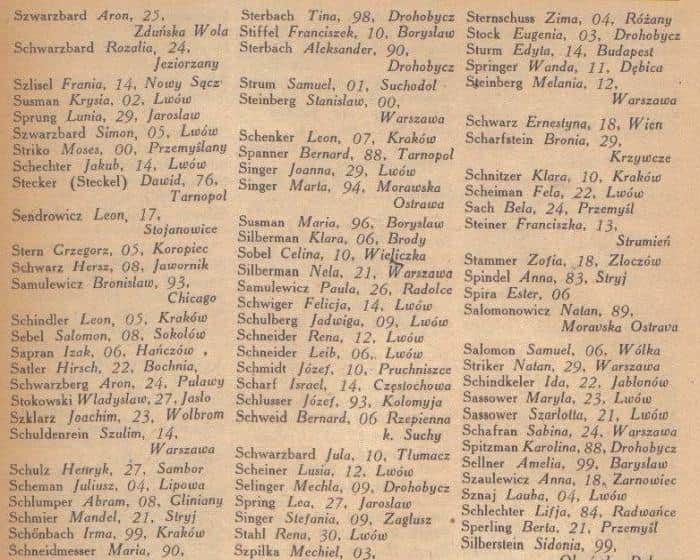 Szwarzbard Aron, 25,
Zduńska Wola
Schwarzbard Rozalia, 24,
Jeziorzany
Szlisel Frania, 14, Nowy Sącz
Susman Krysia, 02, Lwów
Sprung Lunia, 29, Jaroslaw
Szwarzbard Simon, 05, Lwów
Striko Moses, 00, Przemyślany
Schechter Jakub, 14, Lwów
Stecker (Steckel) Dawid, 76,
Tarnopol
Sendrowicz Leon, 17,
Stojanowice
Stern Grzegorz, 05, Koropiec
Schwarz Hersz, 08, Jawornik
Samulewicz Bronisław, 93,
Chicago
Schindler Leon, 05, Kraków
Sebel Salomon, 08, Sokolów
Sapran Izak, 06, Hańczów
Satler Hirsch, 22, Bochnia,
Schwarzberg Aron, 24, Pulawy
Stokowski Wladyslaw, 27, Jaslo
Szklarz Joachim, 23, Wolbrom
Schuldenrein Szulim, 14,
Warszawa
Schulz Henryk, 27, Sambor
Scheman Juliusz, 04, Lipowa
Schlumper Abram, 08, Gliniany
Schmier Mandel, 21, Stryj
Schönbach Irma, 99, Kraków
Schneidmesser Maria, 90,
Sterbach Tina, 98, Drohobycz
Stiffel Franciszek, 10, Boryslaw
Sterbach Aleksander, 90,
Drohobycz
Strum Samuel, 01, Suchodol
Steinberg Stanislaw, 00,
Warszawa
Schenker Leon, 07, Kraków
Spanner Bernard, 88, Tarnopol
Singer Joanna, 29, Lwów
Singer Marta, 94, Morawska
Ostrawa
Susman Maria, 96, Boryslaw
Silberman Klara, 06, Brody
Sobel Celina, 10, Wieliczka
Silberman Nela, 21, Warszawa
Samulewicz Paula, 26, Radolce
Schwiger Felicja, 14, Lwów
Schulberg Jadwiga, 09, Lwów
Schneider Rena, 12, Lwów
Schneider Leib, 06, Lwów
Schmidt Józef, 10, Pruchniszce
Scharf Israel, 14, Częstochowa
Schlusser Józef, 93, Kolomyja
Schweid Bernard, 06 Rzepienna
k. Suchy
Schwarzbard Jula, 10, Tlumacz
Scheiner Lusia, 12, Lwów
Selinger Mechla, 09, Drohobycz
Spring Lea, 27, Jaroslaw
Singer Stefania, 09, Zaglusz
Stahl Rena, 30, Lwów
Szpilka Mechiel, 03,
Sternschuss Zima, 04, Różany
Stock Eugenia, 03, Drohobycz
Sturm Edyta, 14, Budapest
Springer Wanda, 11, Dębica
Steinberg Melania, 12,
Warszawa
Schwarz Ernestyna, 18, Wien
Scharfstein Bronia, 29,
Krzywcze
Schnitzer Klara, 10, Kraków
Scheiman Fela, 22, Lwów
Sach Bela, 24, Przemyśl
Steiner Franciszka, 13,
Strumień
Stammer Zofia, 18, Zloczów
Spindel Anna, 83, Stryj
Spira Ester, 06
Salomonowicz Natan, 89,
Moravska Ostrava
Salomon Samuel, 06, Wólka
Striker Natan, 29, Warszawa
Schindkeler Ida, 22, Jablonów
Sassower Maryla, 23, Lwów
Sassower Szarlotta, 21, Lwów
Schafran Sabina, 24, Warszawa
Spitzman Karolina, 88, Drohobycz
Sellner Amelia, 99, Baryslaw
Szaulewicz Anna, 18, Zarnowiec
Sznaj Lauba, 04, Lwów
Schlechter Lifja, 84, Radwańce
Sperling Berta, 21, Przemyśl
Silberstein Sidonia, 99,